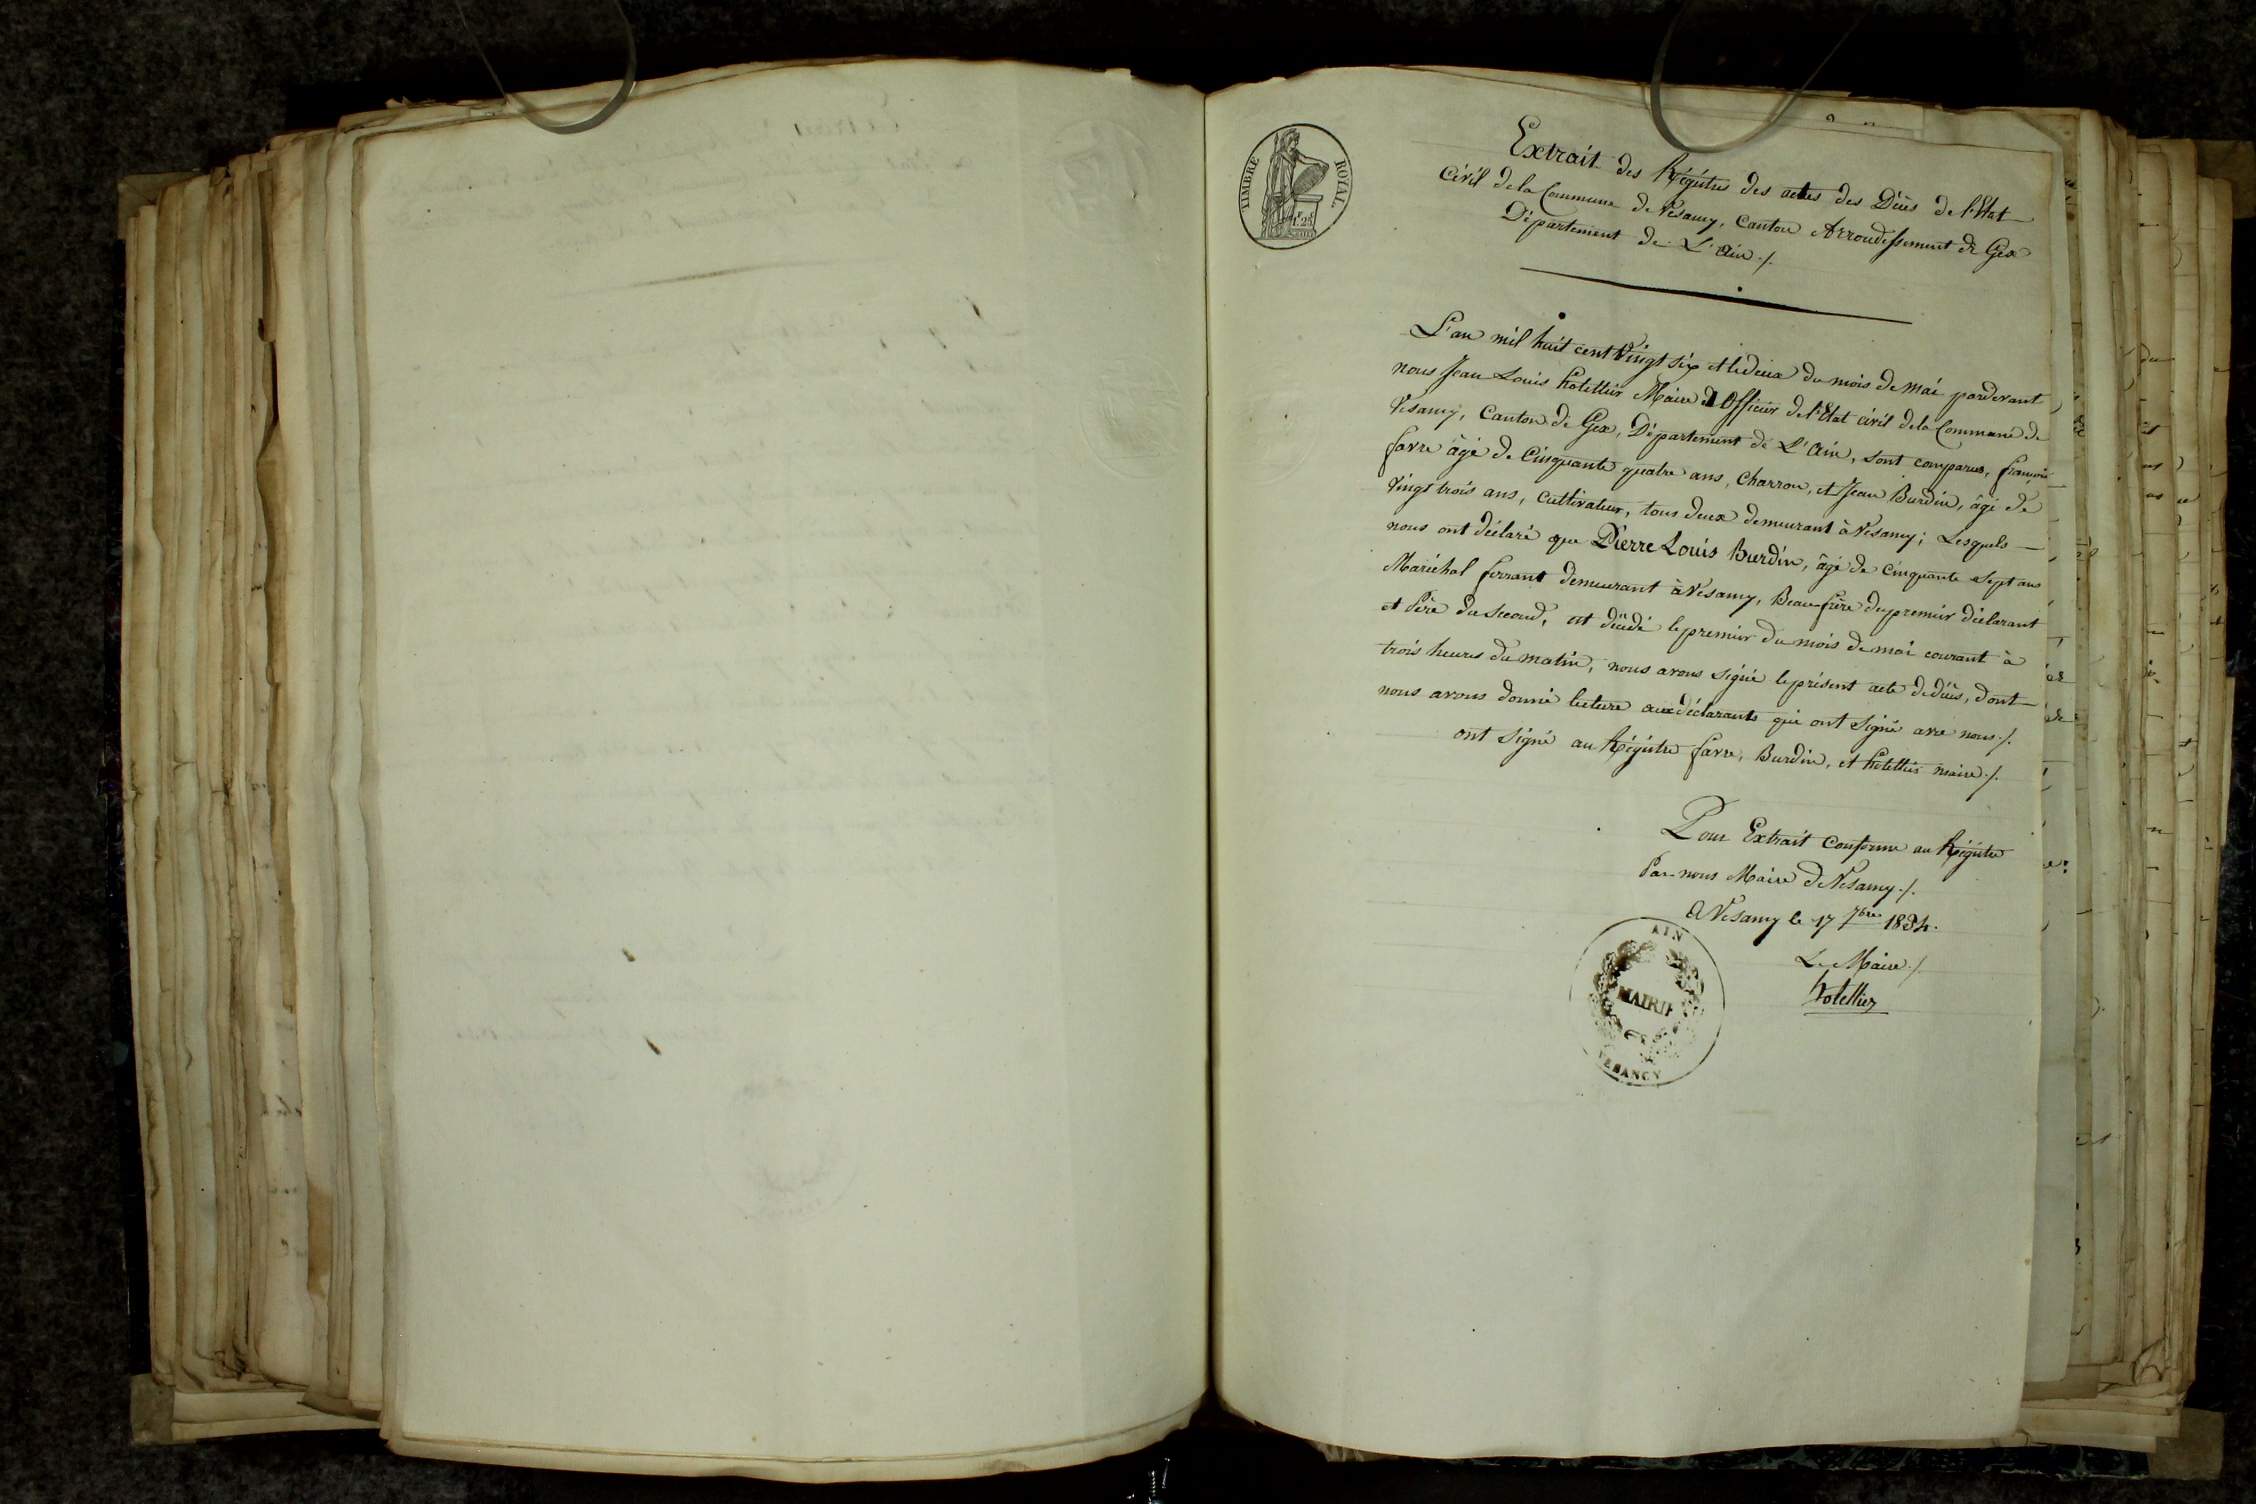 TIMBRE ROYAL
1.25
Extrait des Régistres des actes des Décès de l'Etat
Civil de la Commune de Vesancy, Canton Arrondissement de Gex
Département de L'Ain ./.
L'an mil huit cent Vingt six et le deux du mois de mai pardevant
nous Jean Louis hotellier Maire et Officier de l'Etat civil de la Commune de
Vesancy, Canton de Gex, Département de L'Ain, sont comparus, françois
favre âgé de Cinquante quatre ans, Charron, et Jean Burdin, âgé de
Vingt trois ans, Cultivateur, tous deux demeurant à Vesancy; Lesquels
nous ont déclaré que Pierre Louis Burdin, âgé de cinquante sept ans
Maréchal ferrant demeurant à Vesancy, Beau-frère du premier déclarant
et Père du second, est décédé le premier du mois de mai courant à
trois heures du matin, nous avons signé le présent acte de décès, dont
nous avons donné lecture aux déclarants qui ont signé avec nous ./.
ont signé au Régistre favre, Burdin, et hotellier maire ./.
Pour Extrait conforme au Régistre
Par nous Maire de Vesancy ./.
A Vesancy le 17 7bre 1834.
Le Maire ./.
hotellier
AIN
MAIRIE
VESANCY